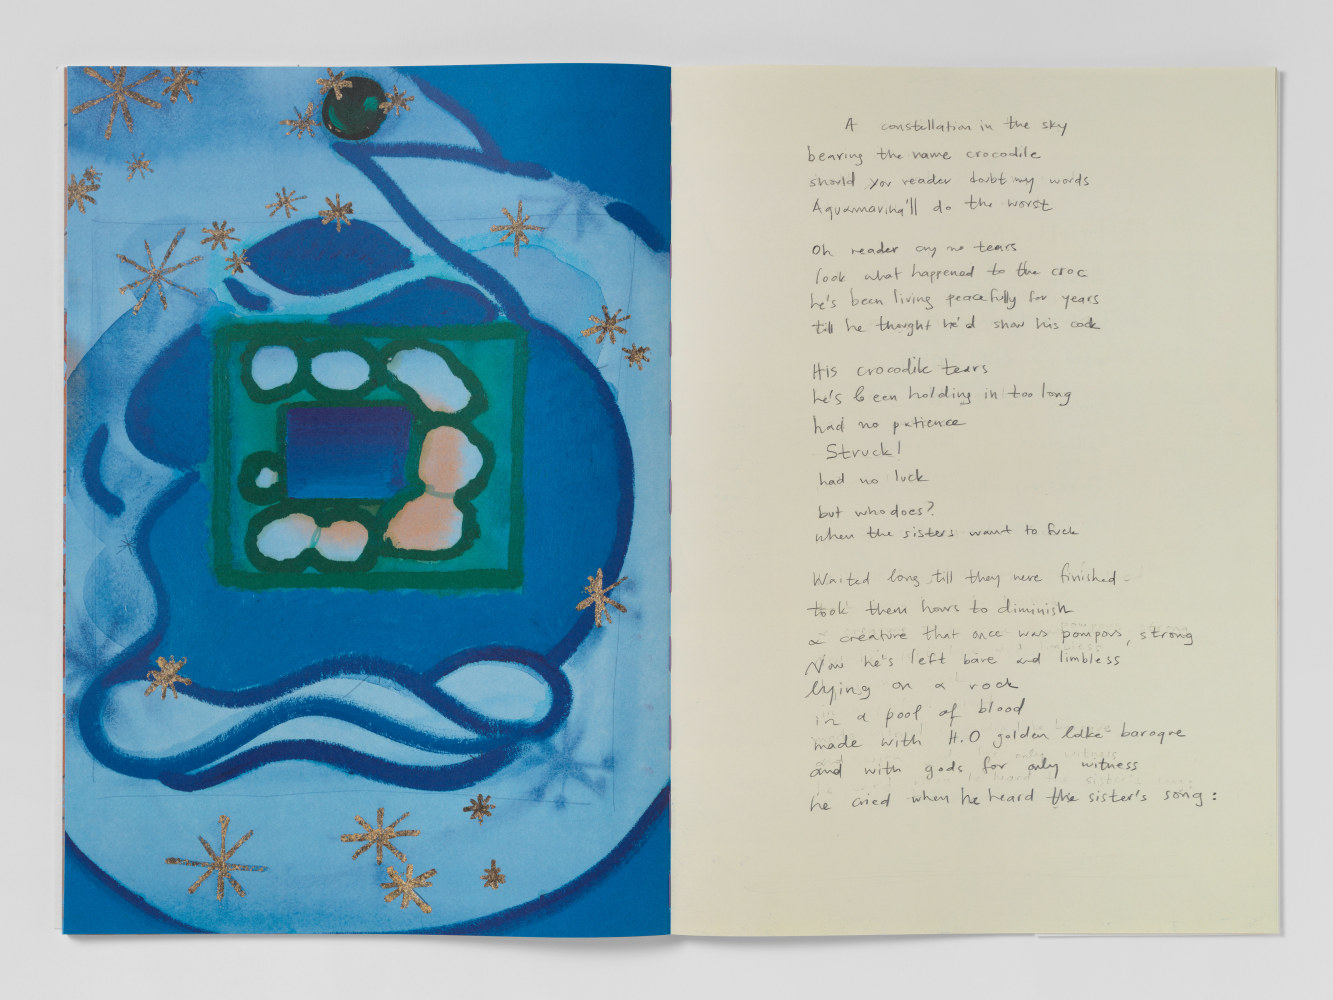 A constellation in the sky
bearing the name crocodile
should you reader doubt my words
Aquamarina'll do the worst
Oh reader cry no tears
look what happened to the croc
he's been living peacefully for years
till he thought he'd show his cock
His crocodile tears
he's been holding in too long
had no patience
Struck!
had no luck
but who does?
when the sisters want to fuck
Waited long till they were finished
took them hours to diminish
a creature that once was pompous, strong
Now he's left bare and limbless
lying on a rock
in a pool of blood
made with H.O golden lake baroque
and with gods for only witness
he cried when he heard the sister's song: